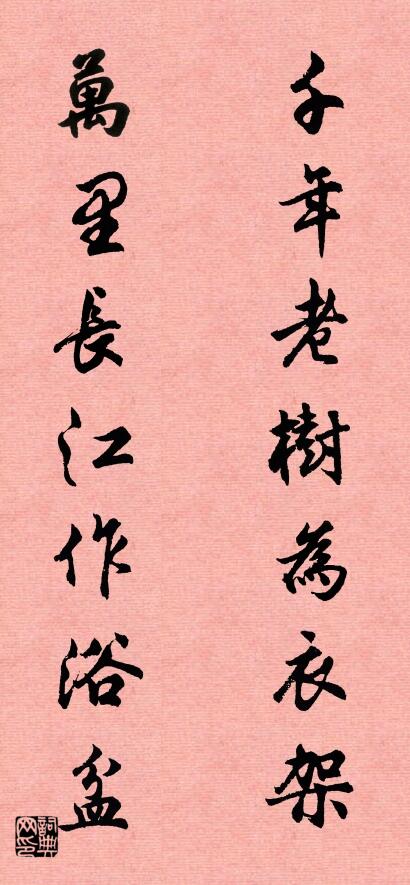 千年老樹為衣架
萬里長江作浴盆
詞典網印